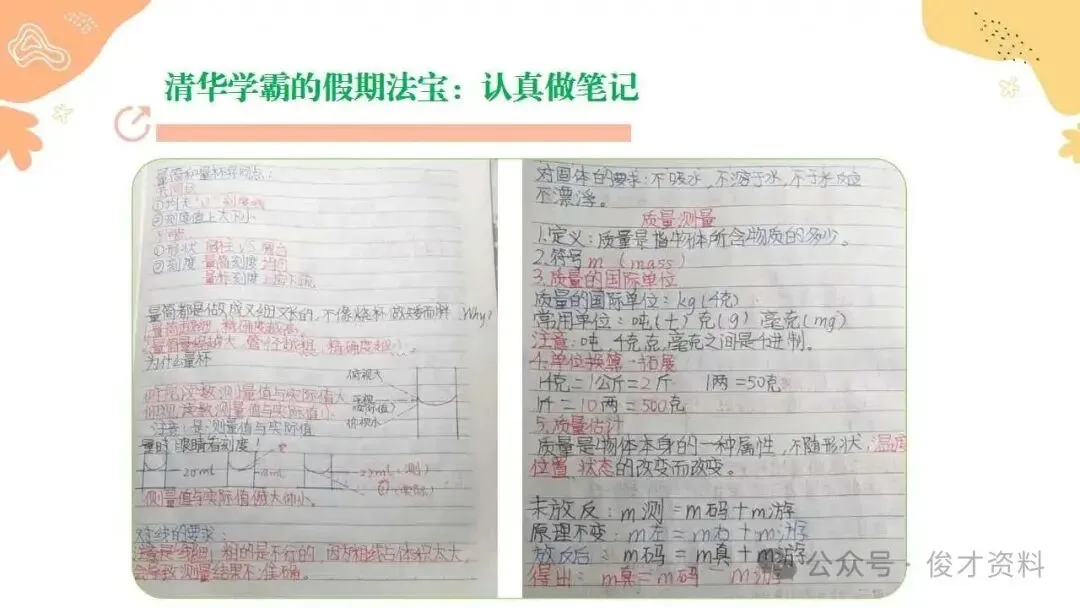 清华学霸的假期法宝：认真做笔记
量筒和量杯异同点：
②刻度值上大下小
①形状 圆柱 VS 圆台
②刻度 量筒刻度：均匀
量杯刻度：上密下疏
量筒都是做成又细又长的，不像烧杯 做矮而胖 Why?
为什么量杯
俯视大
平视
(实际值)
仰视小
俯视读数测量值与实际值大
仰视读数测量值与实际值小
注意：是测量值与实际值
量时 眼睛看刻度！
20ml
22ml (测)
(实际)
测量值与实际值俯大仰小。
对线的要求：
粗的是不行的 因为粗线占体积太大
会导致测量结果不准确。
对固体的要求：不吸水，不溶于水，不于水反应
不漂浮。
质量测量
1.定义：质量是指物体所含物质的多少。
2.符号 m (mass)
3.质量的国际单位
质量的国际单位：kg(千克)
常用单位：吨(t) 克(g) 毫克(mg)
注意：吨，千克，克，毫克之间是千进制。
4.单位换算·拓展
1千克=1公斤=2斤 1两=50克
1斤=10两=500克
5.质量估计
质量是物体本身的一种属性，不随形状，温度
位置 状态的改变而改变。
未放反：m测=m码+m游
原理不变：m左=m右+m游
放反后：m码=m真+m游
得出：m真=m码-m游
公众号·俊才资料